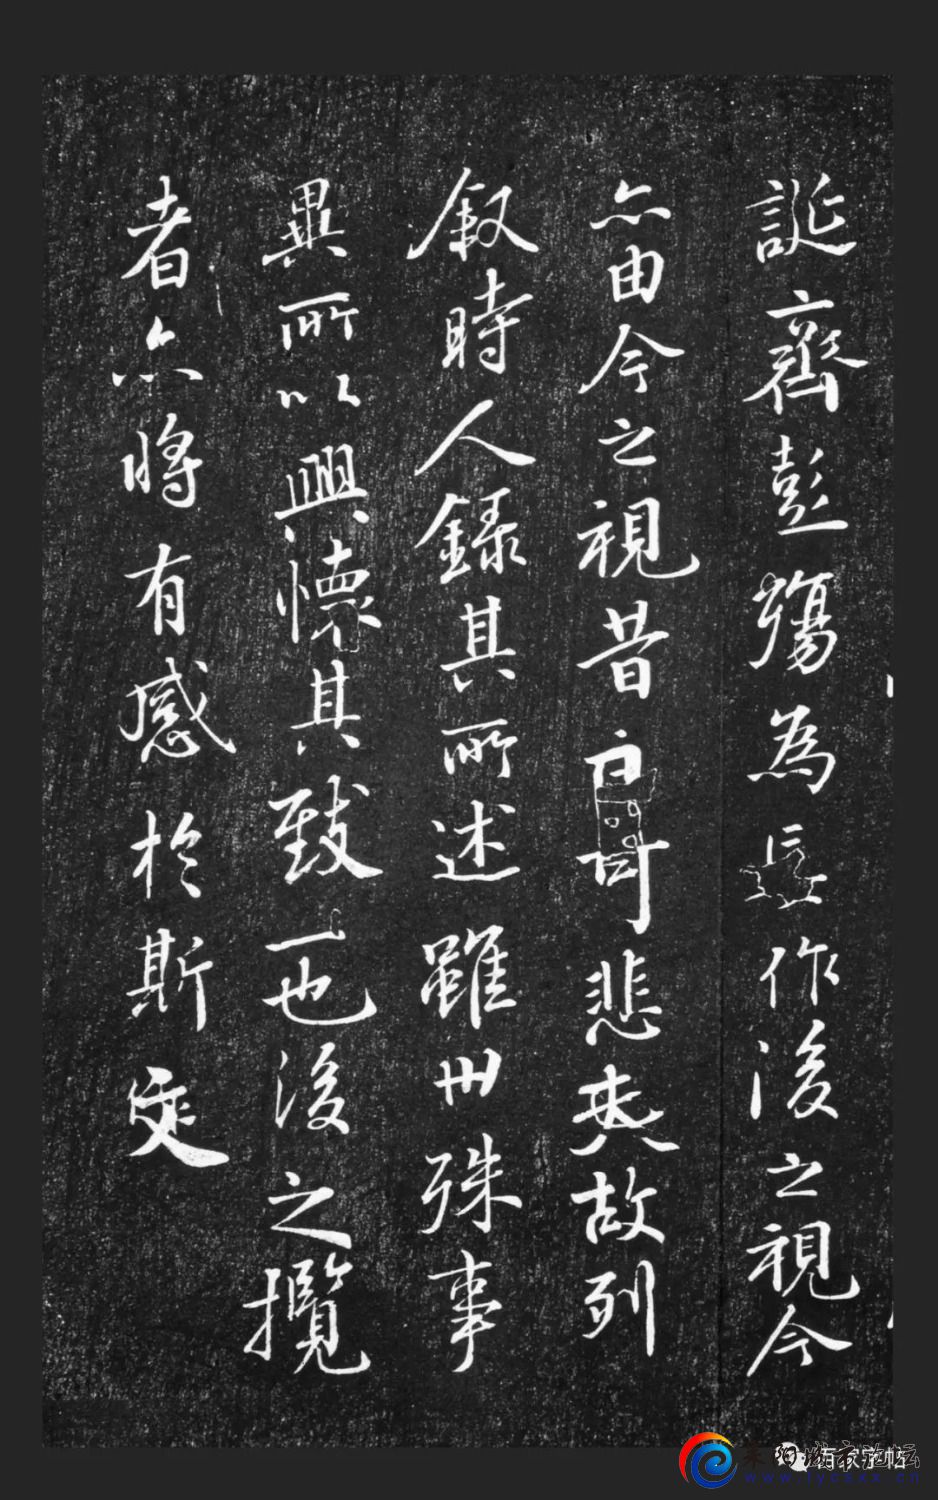 誕齊彭殤為妄作後之視今
亦由今之視昔良可悲夫故列
叙時人錄其所述雖世殊事
異所以興懷其致一也後之攬
者亦將有感於斯文
莱阳城市论坛